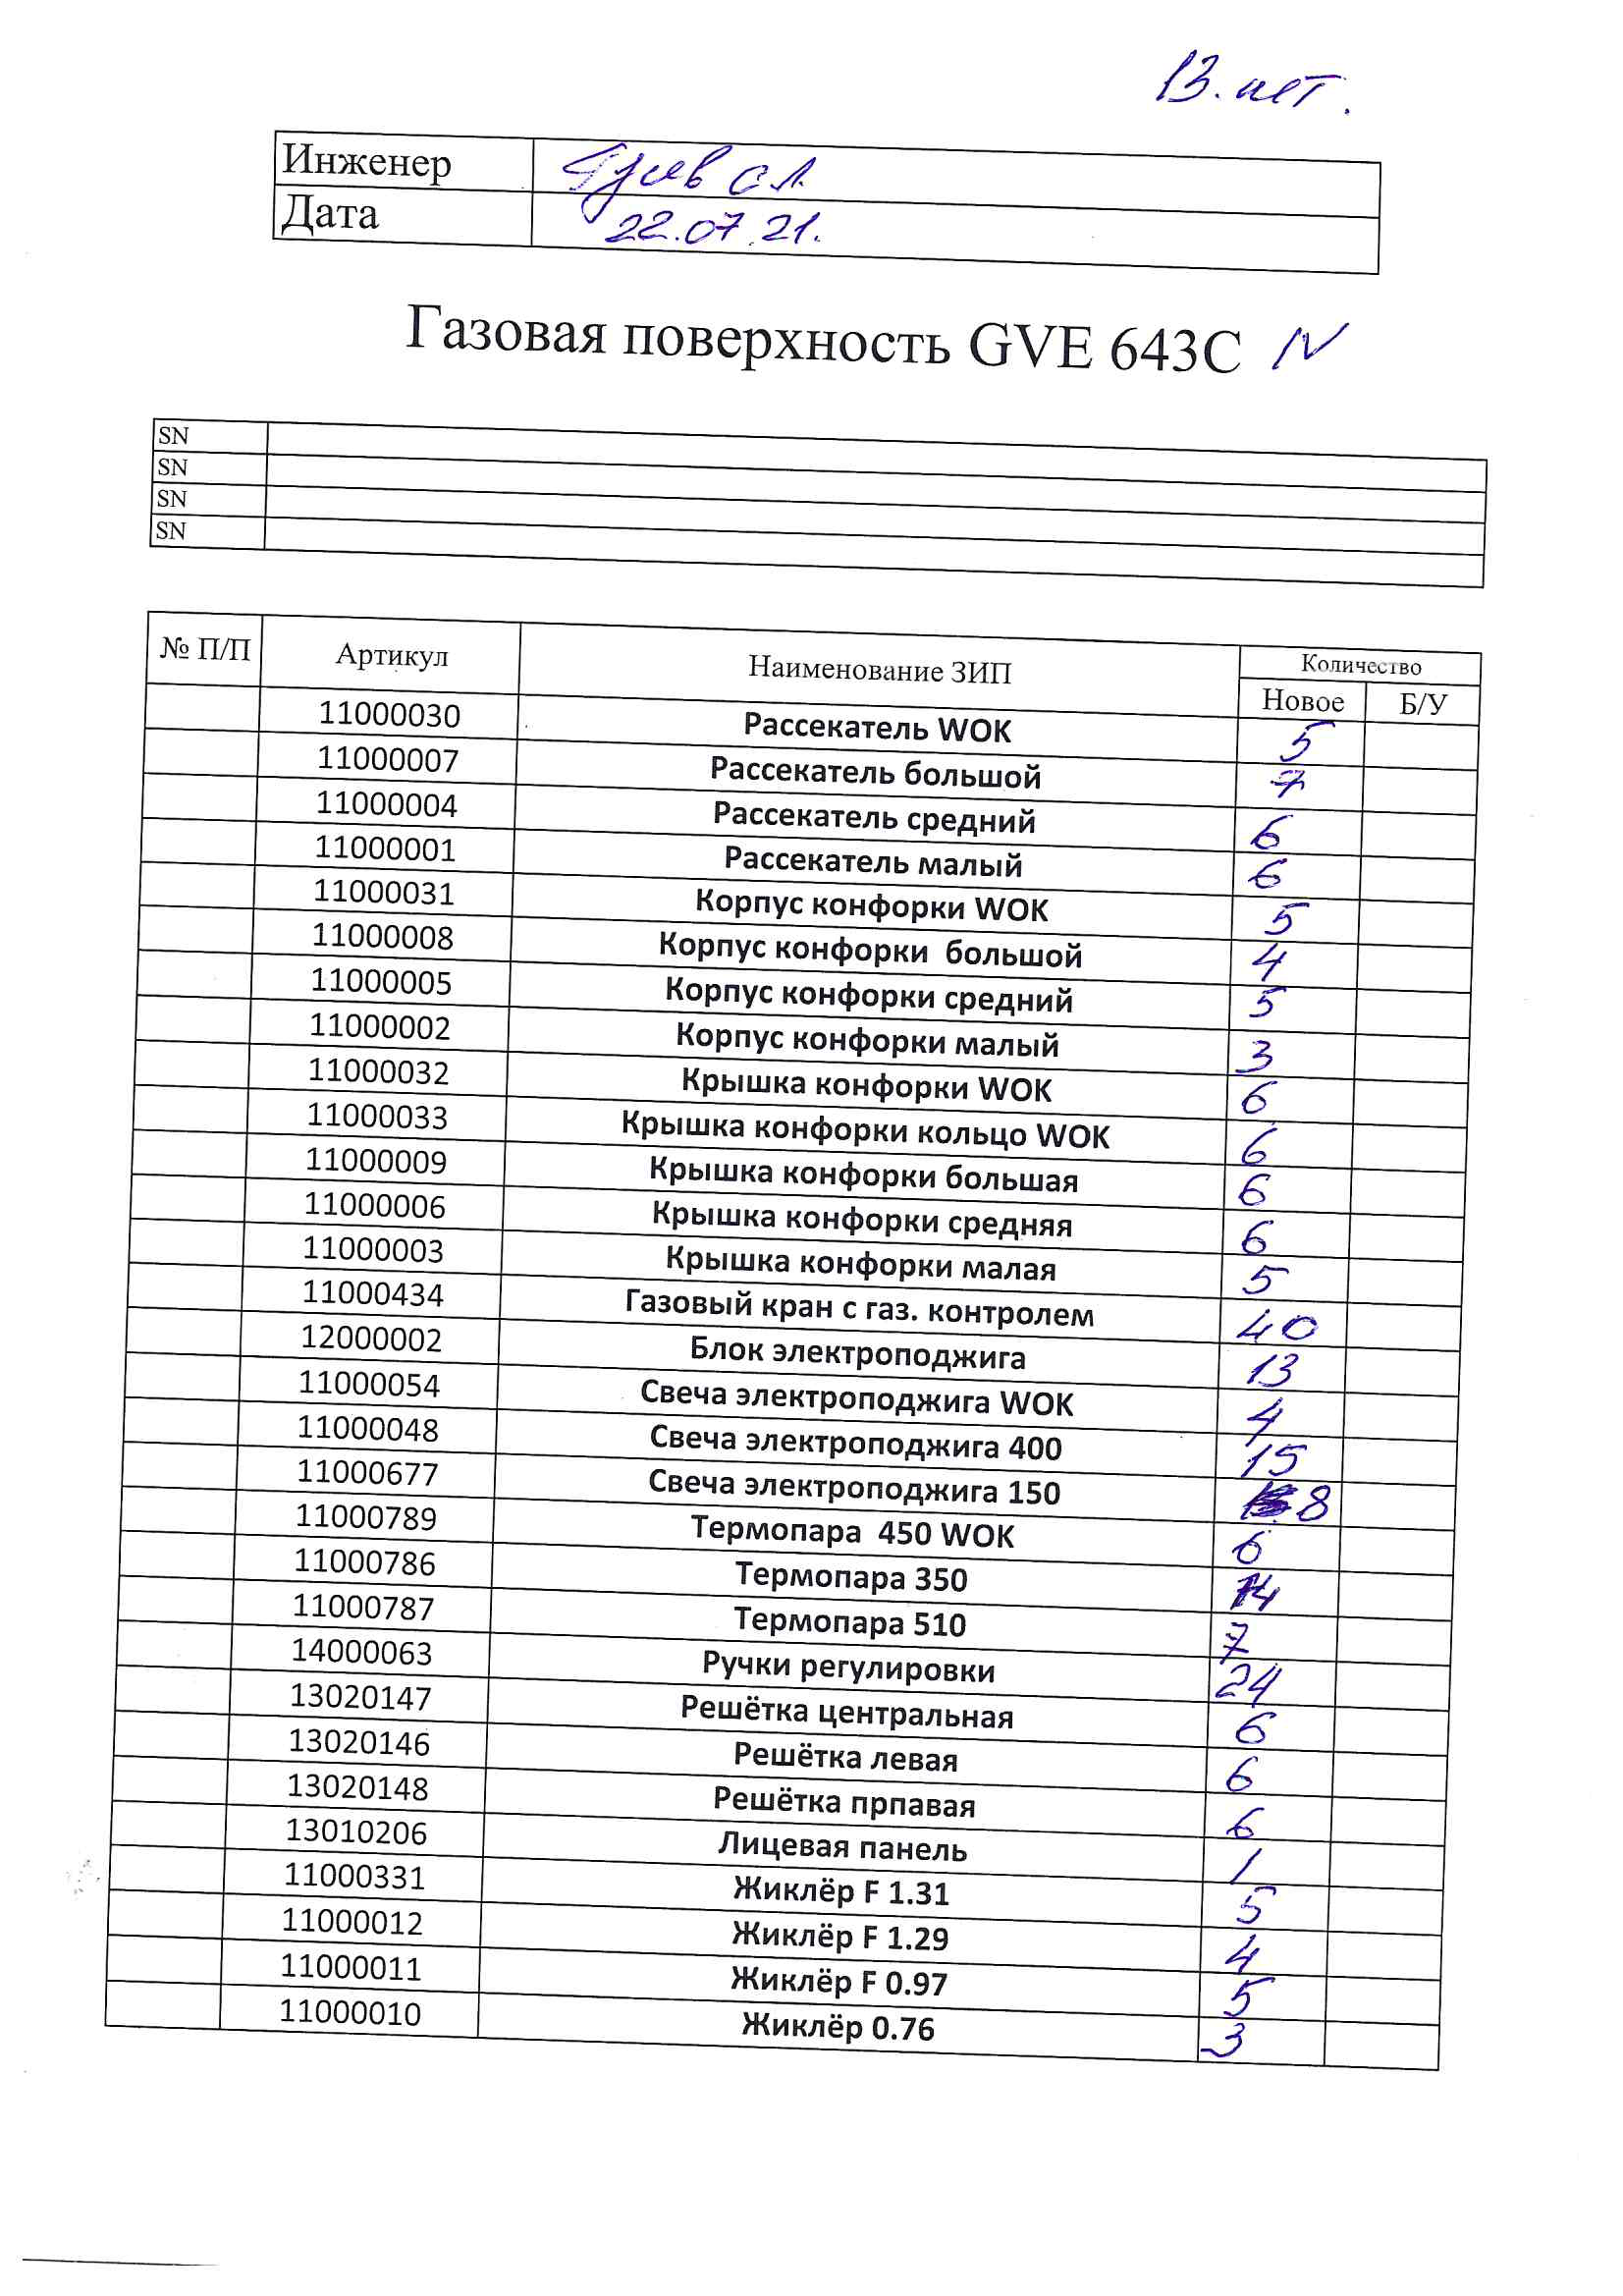 13. шт.
Инженер
Дата 22.07.21.
Газовая поверхность GVE 643C N
SN
SN
SN
SN
№ П/П Артикул Наименование ЗИП Количество
Новое Б/У
11000030 Рассекатель WOK 5
11000007 Рассекатель большой 7
11000004 Рассекатель средний 6
11000001 Рассекатель малый 6
11000031 Корпус конфорки WOK 5
11000008 Корпус конфорки большой 4
11000005 Корпус конфорки средний 5
11000002 Корпус конфорки малый 3
11000032 Крышка конфорки WOK 6
11000033 Крышка конфорки кольцо WOK 6
11000009 Крышка конфорки большая 6
11000006 Крышка конфорки средняя 6
11000003 Крышка конфорки малая 5
11000434 Газовый кран с газ. контролем 40
12000002 Блок электроподжига 13
11000054 Свеча электроподжига WOK 4
11000048 Свеча электроподжига 400 15
11000677 Свеча электроподжига 150 8
11000789 Термопара 450 WOK 6
11000786 Термопара 350 14
11000787 Термопара 510 7
14000063 Ручки регулировки 24
13020147 Решётка центральная 6
13020146 Решётка левая 6
13020148 Решётка прпавая 6
13010206 Лицевая панель 1
11000331 Жиклёр F 1.31 5
11000012 Жиклёр F 1.29 4
11000011 Жиклёр F 0.97 5
11000010 Жиклёр 0.76 3